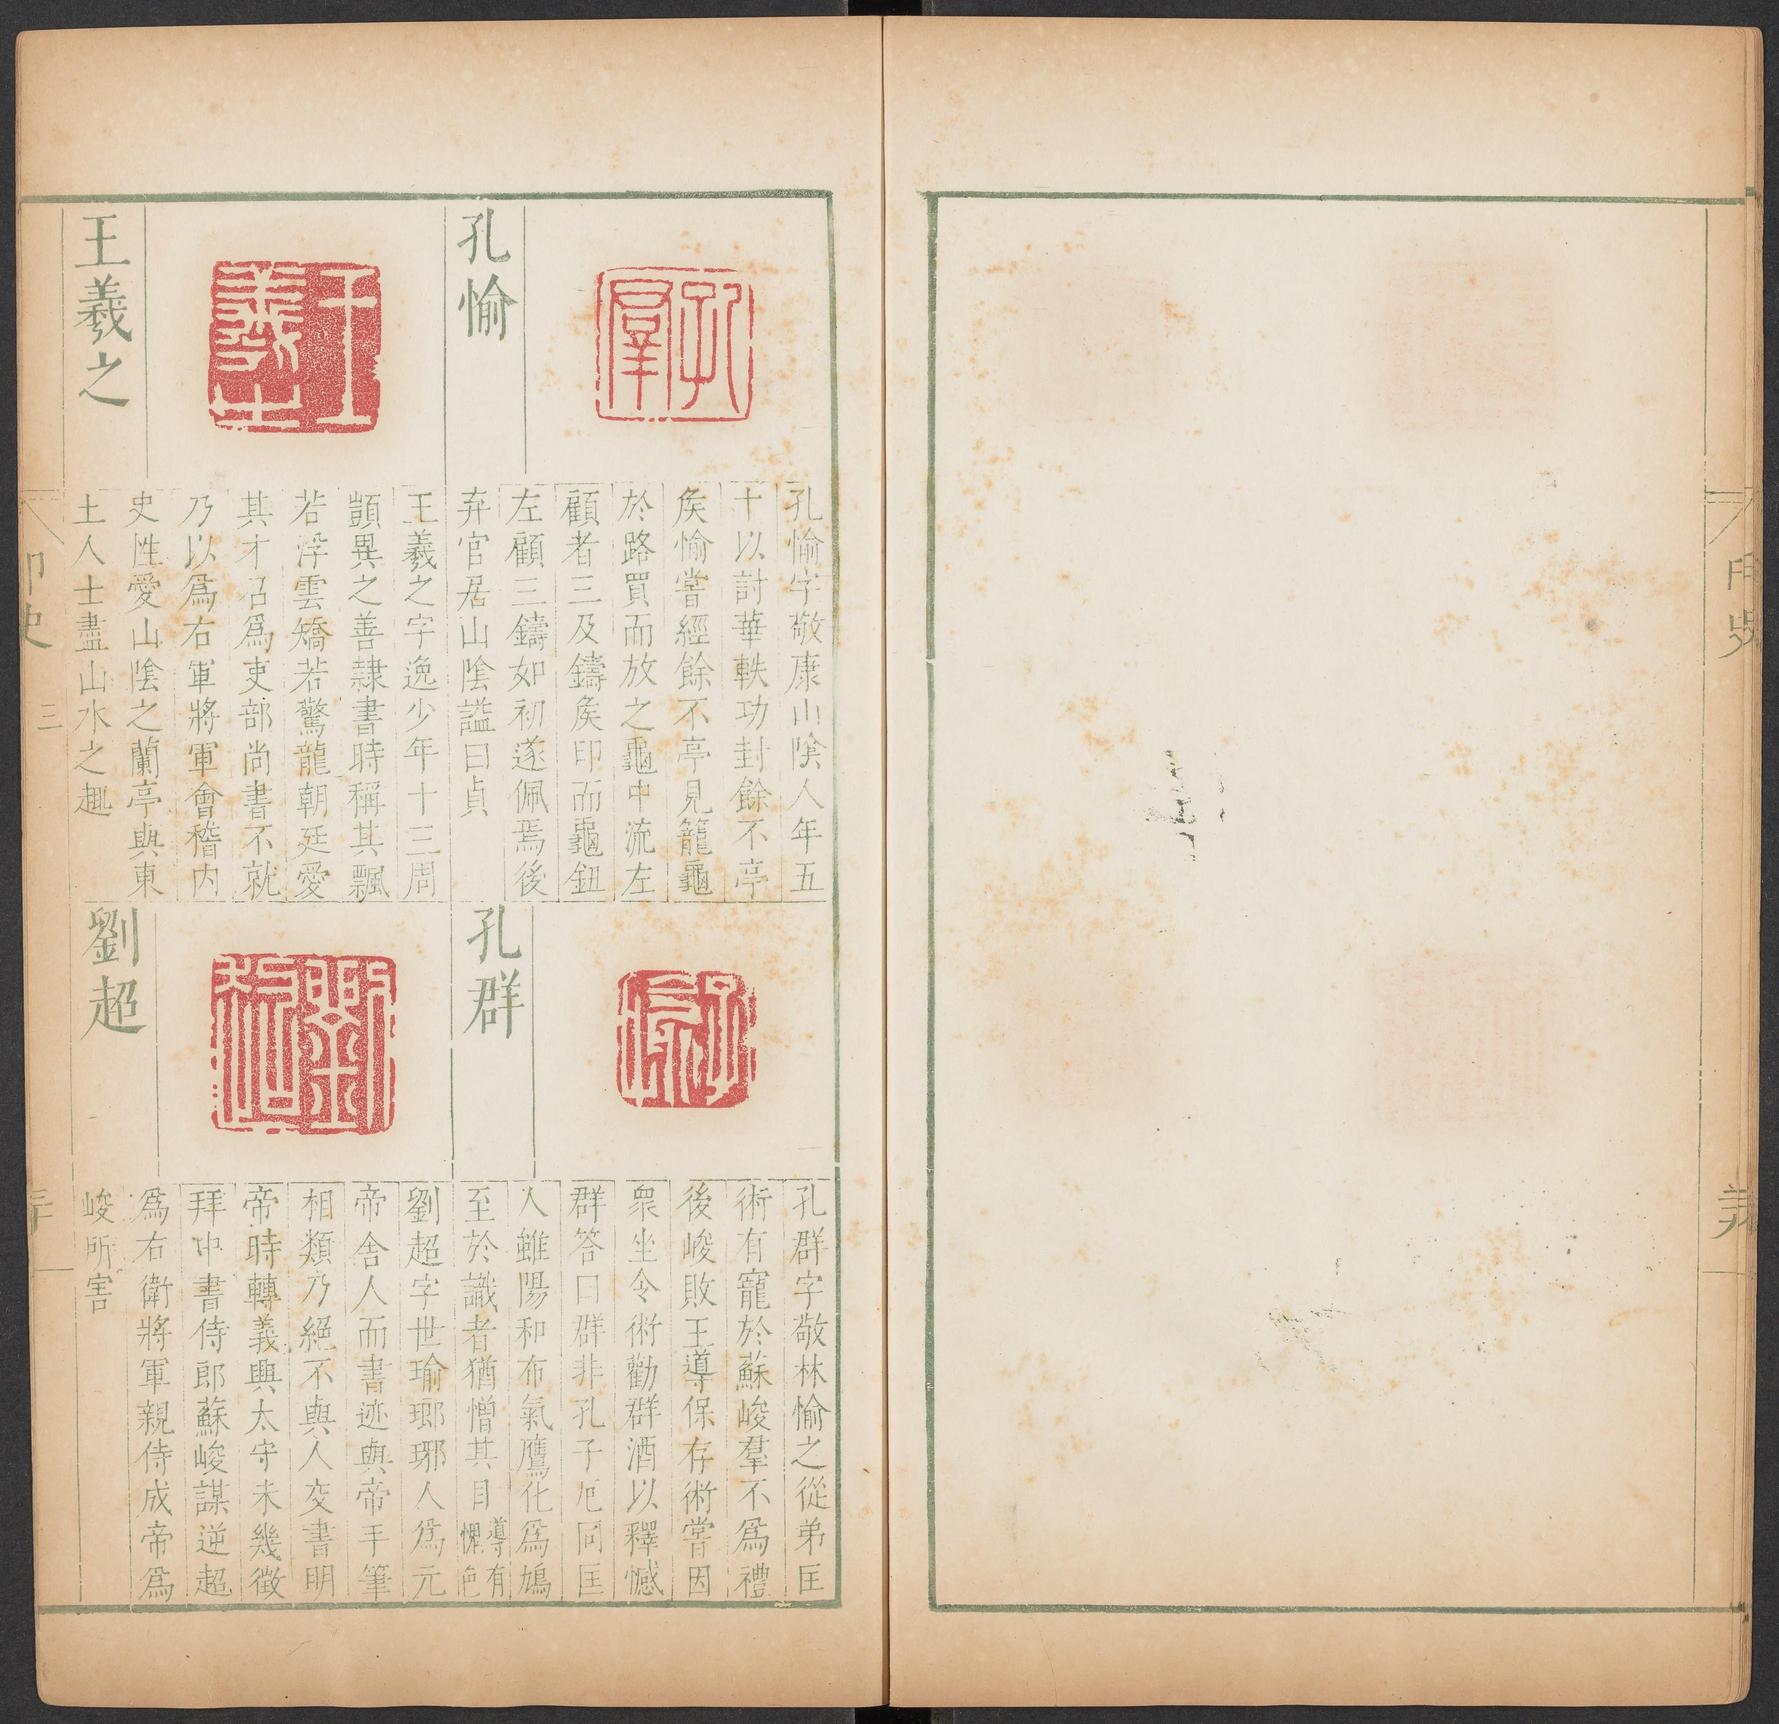 孔愉
孔愉字敬康山陰人年五
十以討華軼功封餘不亭
矦愉嘗經餘不亭見籠龜
於路買而放之龜中流左
顧者三及鑄矦印而龜鈕
左顧三鑄如初遂佩焉後
弃官居山陰謚曰貞
王羲之
王羲之字逸少年十三周
顗異之善隷書時稱其飄
若浮雲矯若驚龍朝廷愛
其才召爲吏部尚書不就
乃以爲右軍將軍會稽内
史性愛山陰之蘭亭與東
土人士盡山水之趣
孔群
孔群字敬林愉之從弟匡
術有寵於蘇峻羣不爲禮
後峻敗王導保存術嘗因
衆坐令術勸群酒以釋憾
群答曰群非孔子厄同匡
人雖陽和布氣鷹化爲鳩
至於識者猶憎其目導有愧色
劉超
劉超字世瑜瑯琊人爲元
帝舍人而書迹與帝手筆
相類乃絕不與人交書明
帝時轉義興太守未幾徵
拜中書侍郎蘇峻謀逆超
爲右衛將軍親侍成帝爲
峻所害
印史
三